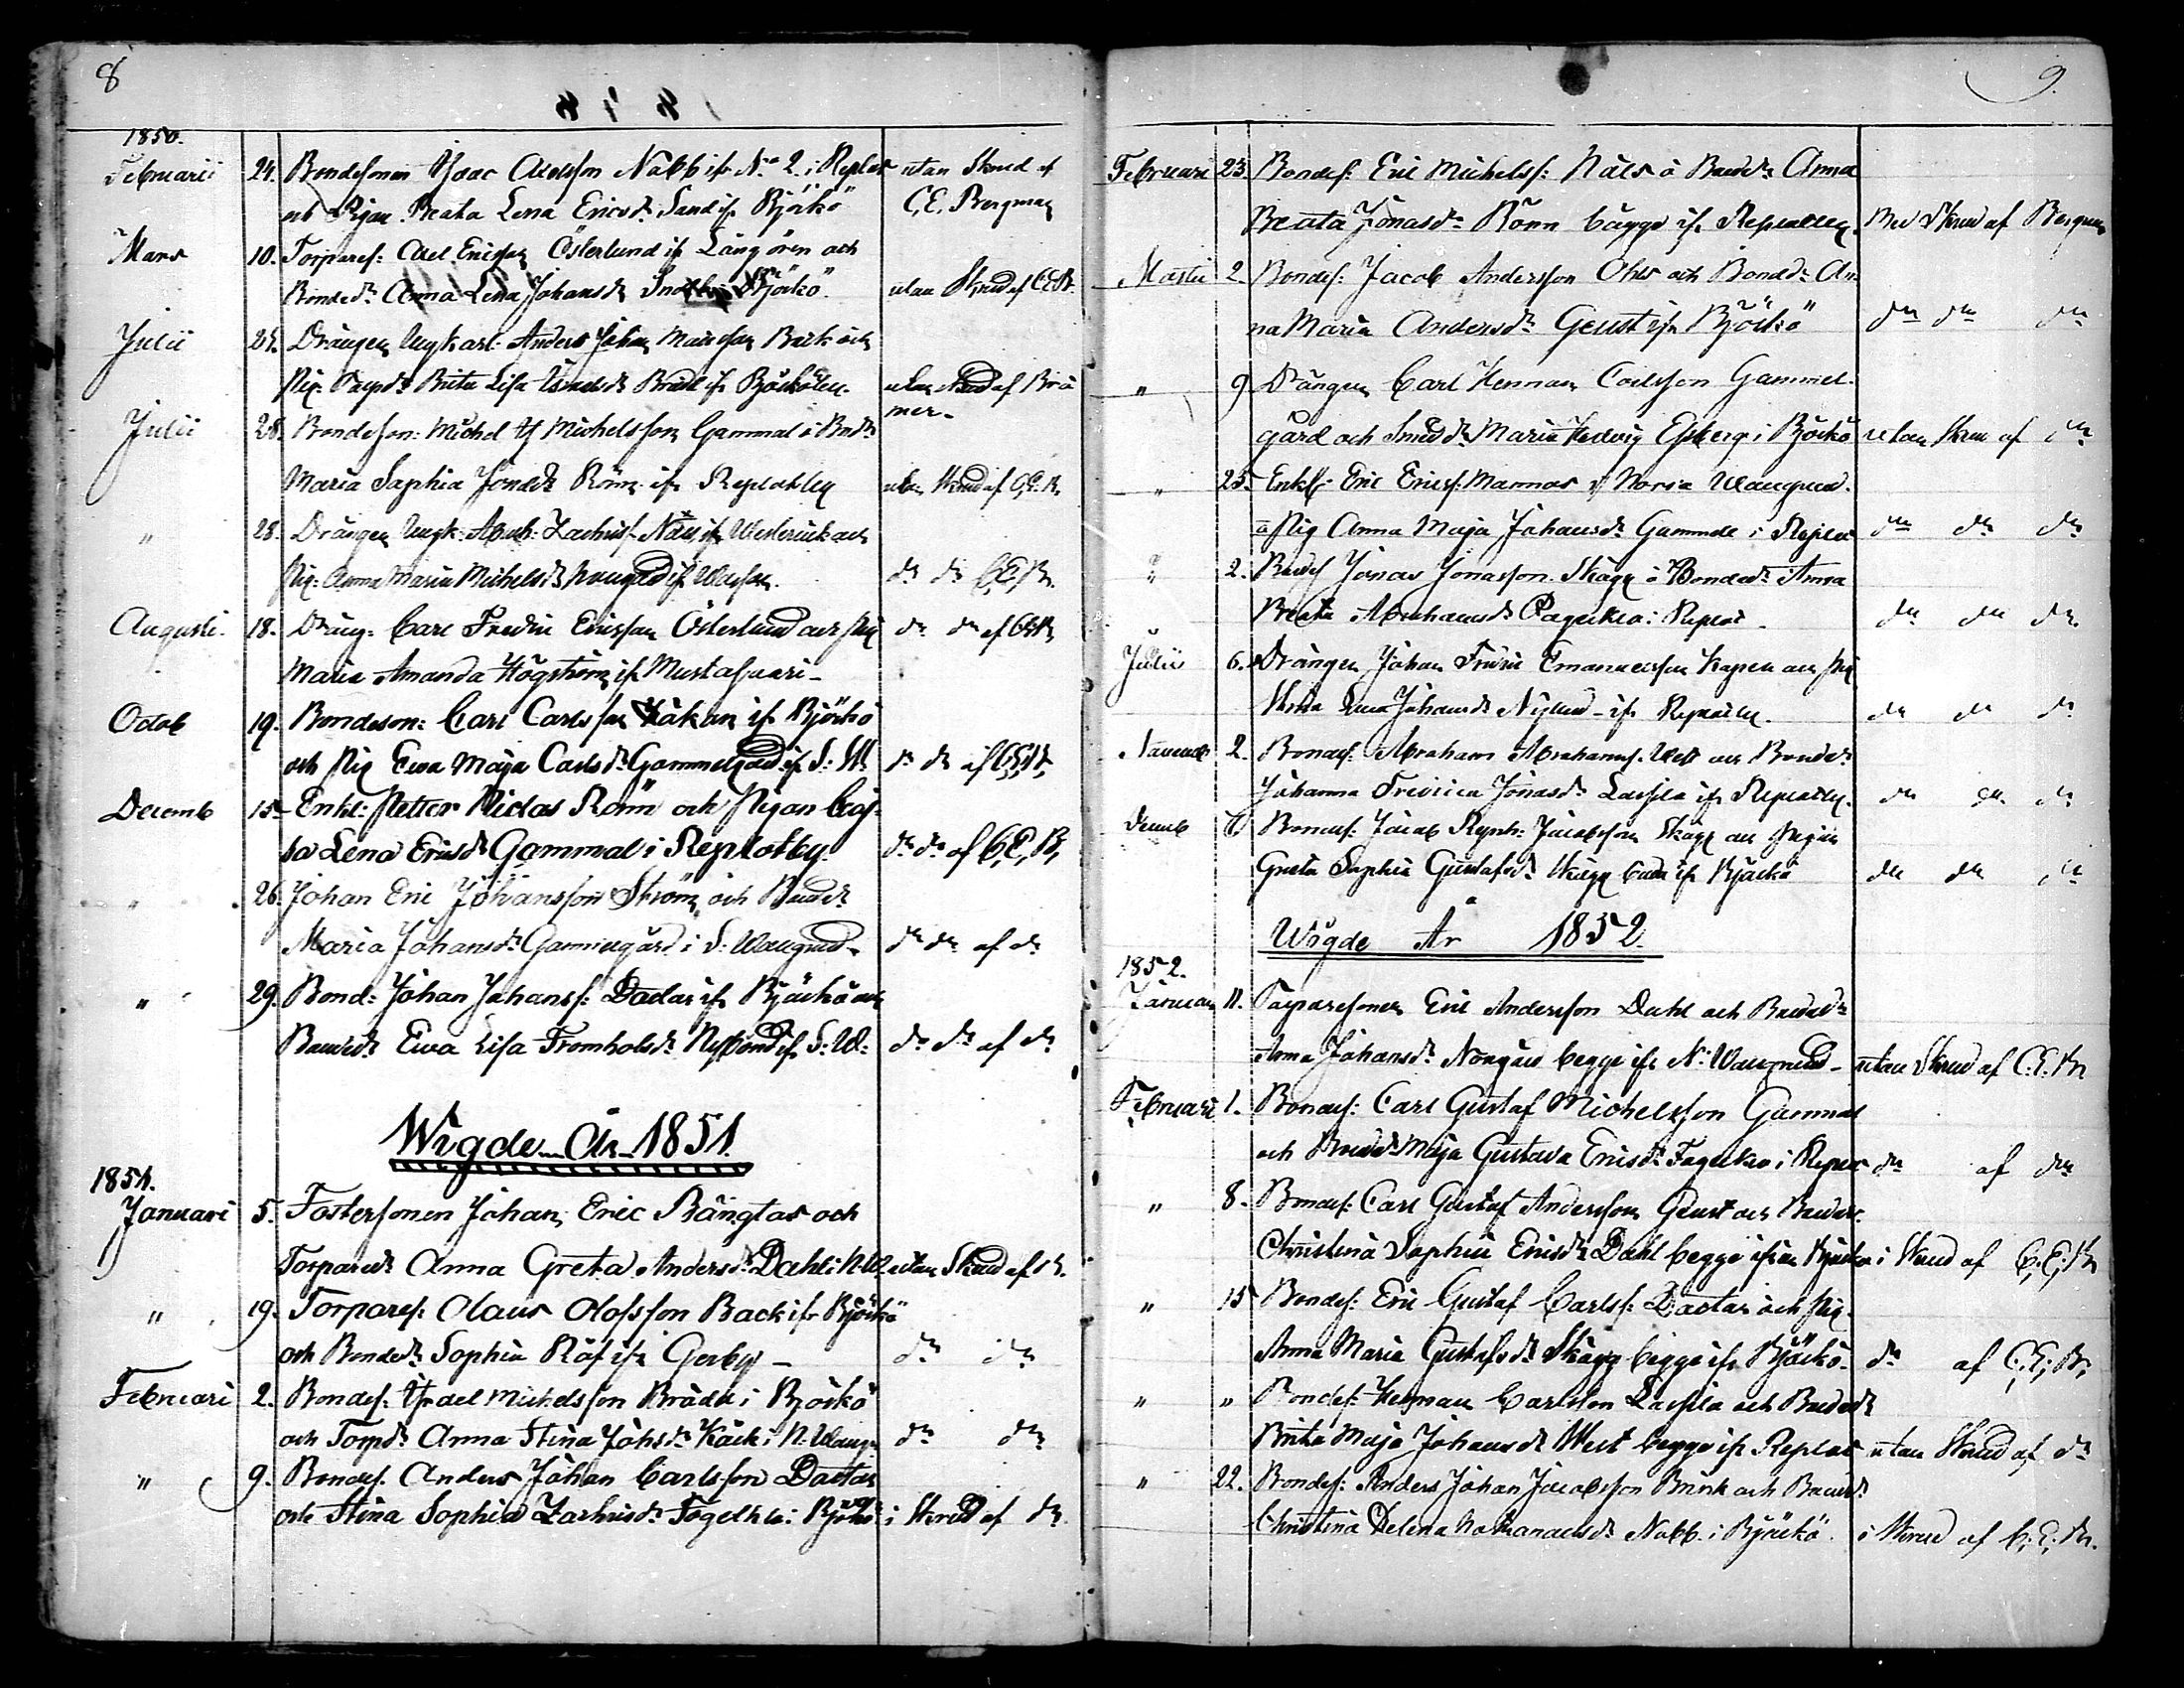 8
1850.
Februarii 24. Bondesonen Isaac Abelsson Nabb ifr. No 2. i Replot utan Skrud af
och Pigan Beata Lena Ericsdr Sand ifr Björkö C. E. Bergman
Mars 10. Torpares: Abel Ericsson Österlund ifr Långören och
Bonded: Anna Lena Johansdr Björkö. utan Skrud af C.E.B.
Julii 24. Drängen Ungkarl: Anders Johan Matsson Back och
Pig. Torpdr Brita Lisa Israelsdr Brädd ifr Björköby. utan Skrud af Brå
mer.
Julii 28. Bondeson: Michel Michelsson Gammal o Bodr
Maria Sophia Jonasdr Rönn ifr Replotby utan Skrud af C.E.B.
" 28. Drängen Ungk: Abrah: Zachriss. Näs ifr Westervik och
Pig: Anna Maria Michelsdr ifr Wassor. dn dn C.E.B.
Augusti. 18. Dräng: Carl Fredric Ericsson Österlund och Pig dn dn af CEB.
Maria Amanda Högström ifr Mustasaari -
Octob 19. Bondeson: Carl Carlsson Håkans ifr Björkö
och Pig Ewa Maja Carlsdr Gammelgård ifr S: W: dn dn af C.E.B.
Decemb 15 Enkl: Petter Niclas Rönn och Pigan Caj-
sa Lena Ericsdr Gammal i Replotby. dn dn af C, E, B,
" 26. Johan Eric Johansson Ström och Bondedr
Maria Johansdr Gammelgård i S: Walgrund. dn dn af dn
" 29. Bond: Johan Johanss: Dadas ifr Björkö och
Bondedr Ewa Lisa Fromholsdr Nybond ifr S: W: dn dn af dn
Wigde År 1851
1851.
Januari 5. Fostersonen Johan Eric Bängtas och
Torparedr Anna Greta Andersdr Dahl i N.W. utan Skrud af
" 19. Torpares: Olaus Olofsson Back ifr Björkö
och Bondedr Sophia Räf ifr Gerby - dn dn
Februari 2. Bondes: Israel Michelsson Brädd i Björkö
och Torpdr Anna Stina Johsdr Käck i N. Walgr dn dn
" 9. Bondes. Anders Johan Carlsson Dastas
och Stina Sophia Zachrisdr Fogelhle i Björkö i Skrud af dn
9.
Februari 23. Bondes: Eric Michelss: Näls o Bondedr Anna
Beata Jonasdr Rönn bägge ifr Replotby. Med Skrud af Bergman
Martii 2. Bondes: Jacob Andersson Ohls och Bondedr An-
na Maria Andersdr Geust ifr Björkö dn dn dn
" 9 Drängen Carl Herman Carlsson Gammel-
gård och Smeddr Maria Hedvig Ekberg i Björkö utan Skrud af dn
" 25. Enkl: Eric Ericss: Mannas Norra Walgrund.
o Pig Anna Maja Johansdr Gammal i Replot dn dn dn
" 2. Bondes Jonas Jonasson Skägg o Bondedr Anna
Beata Abrahamsdr i Replot - dn dn dn
Julii 6. Drängen Johan Fredric Emanuelsson Kapell och Pig
Lena Johansdr Nylund - ifr Replotby. dn dn dn
Novemb 2. Bondes: Abraham Abrahamss. West och Bondedr
Johanna Fredrica Jonasdr Laspla ifr Replotby. dn dn dn
Decemb Bondes: Jacob Jacobsson Skägg och Pigan
Greta Sophia Gustafsdr Skägg båda ifr Björkö dn dn dn
Wigde År 1852.
1852.
Januari 11. Torparesonen Eric Andersson Dahl och Bondedr
Anna Johansdr Norrgård begge ifr N. Walgrund - utan Skrud af C.E.B
Februari 1. Bondes: Carl Gustaf Michelsson Gammal
och Bondedr Maja Gustava Ericsdr i Replot dn af dn
" 8. Bondes: Carl Gustaf Andersson Geust och Bondedr.
Christina Sophia Ericsdr Dahl begge ifrån Björkö i Skrud af C. E. B
" 15 Bondes: Eric Gustaf Carlss: Dastas och Pig.
Anna Maria Gustafsdr Skägg begge ifr Björkö. dn af C; E; B;
" " Bondes: Herman Carlsson Laspla och Bondedr
Brita Maja Johansdr West begge ifr Replot utan Skrud af dn
" 22. Bondes: Anders Johan Jacobsson Brink och Bondedr
Christina Helena Nathanaelsdr Nabb. i Björkö. i Skrud af C; E; B.